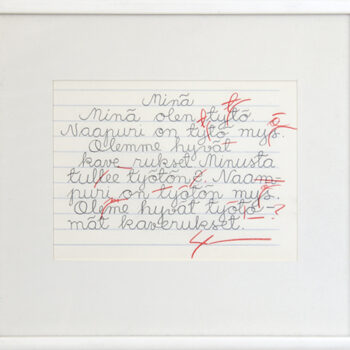 Minä
Minä olen tyttö.
Naapuri on tyttö mys.
Olemme hyvät
kave rukset. Minusta
tullee työtönt. Naam-
puri on työtön mys.
Oleme hyvät työtö-
mät kaverukset.